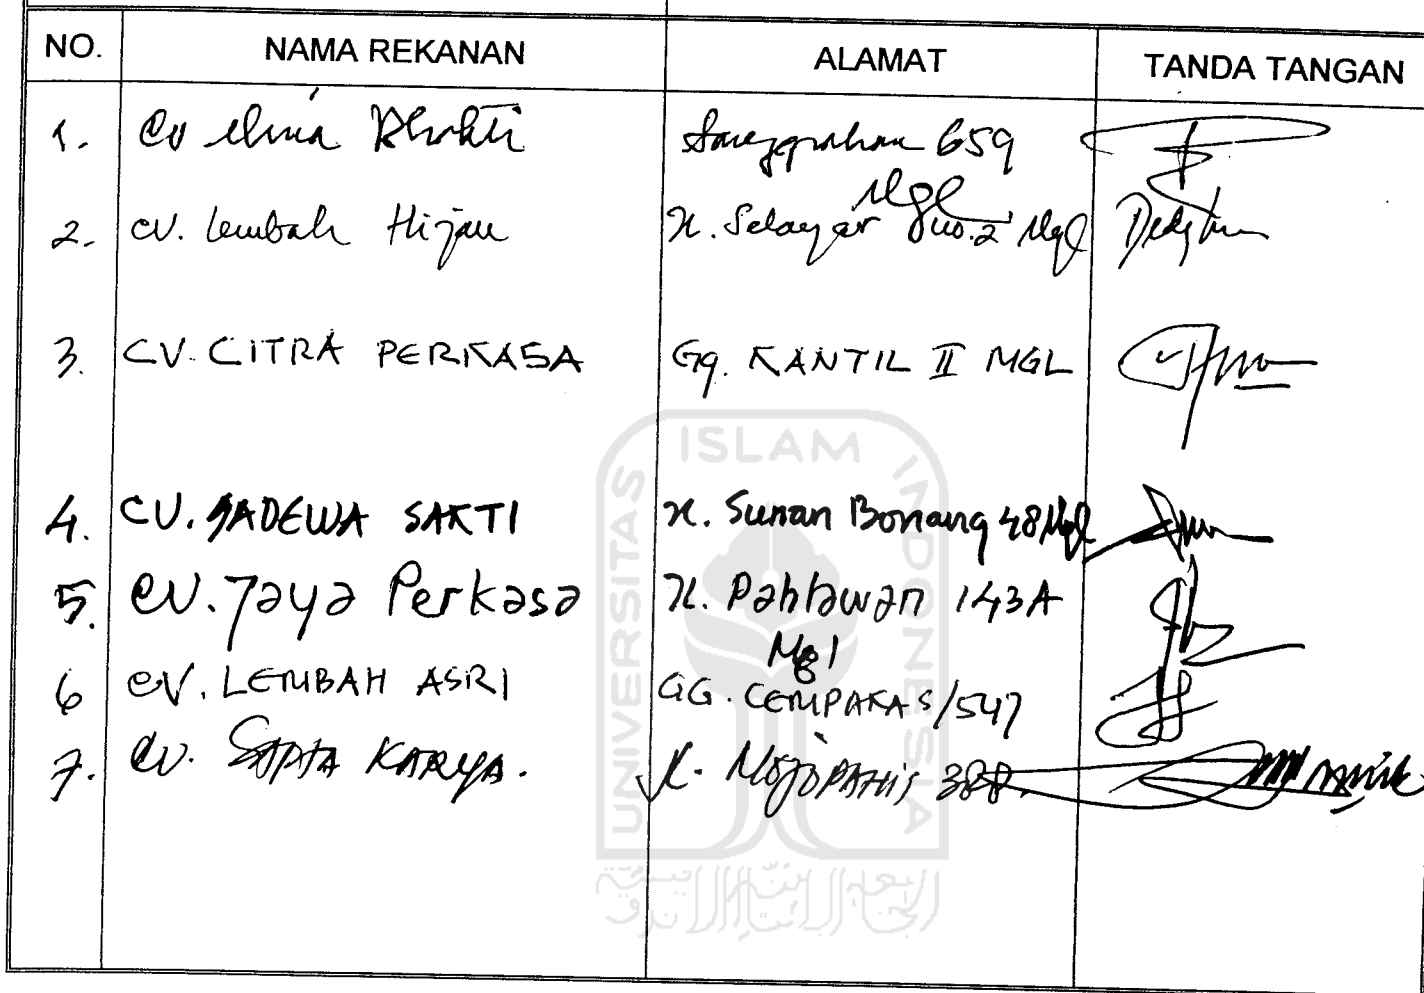 NO. NAMA REKANAN ALAMAT TANDA TANGAN
1. CV Bhakti Sanggrahan 659
Mgl
2. CV. Lembah Hijau Jl. Selayar no.2 Mgl
3. CV. CITRA PERKASA Gg. KANTIL II MGL
4. CV. SADEWA SAKTI Jl. Sunan Bonang 48 Mgl
5. CV. Jaya Perkasa Jl. Pahlawan 143A
Mgl
6 CV. LEMBAH ASRI GG. CEMPAKA 5/547
7. CV. SAPTA KARYA. Jl. MOJOPAHIT 388.
UNIVERSITAS ISLAM INDONESIA